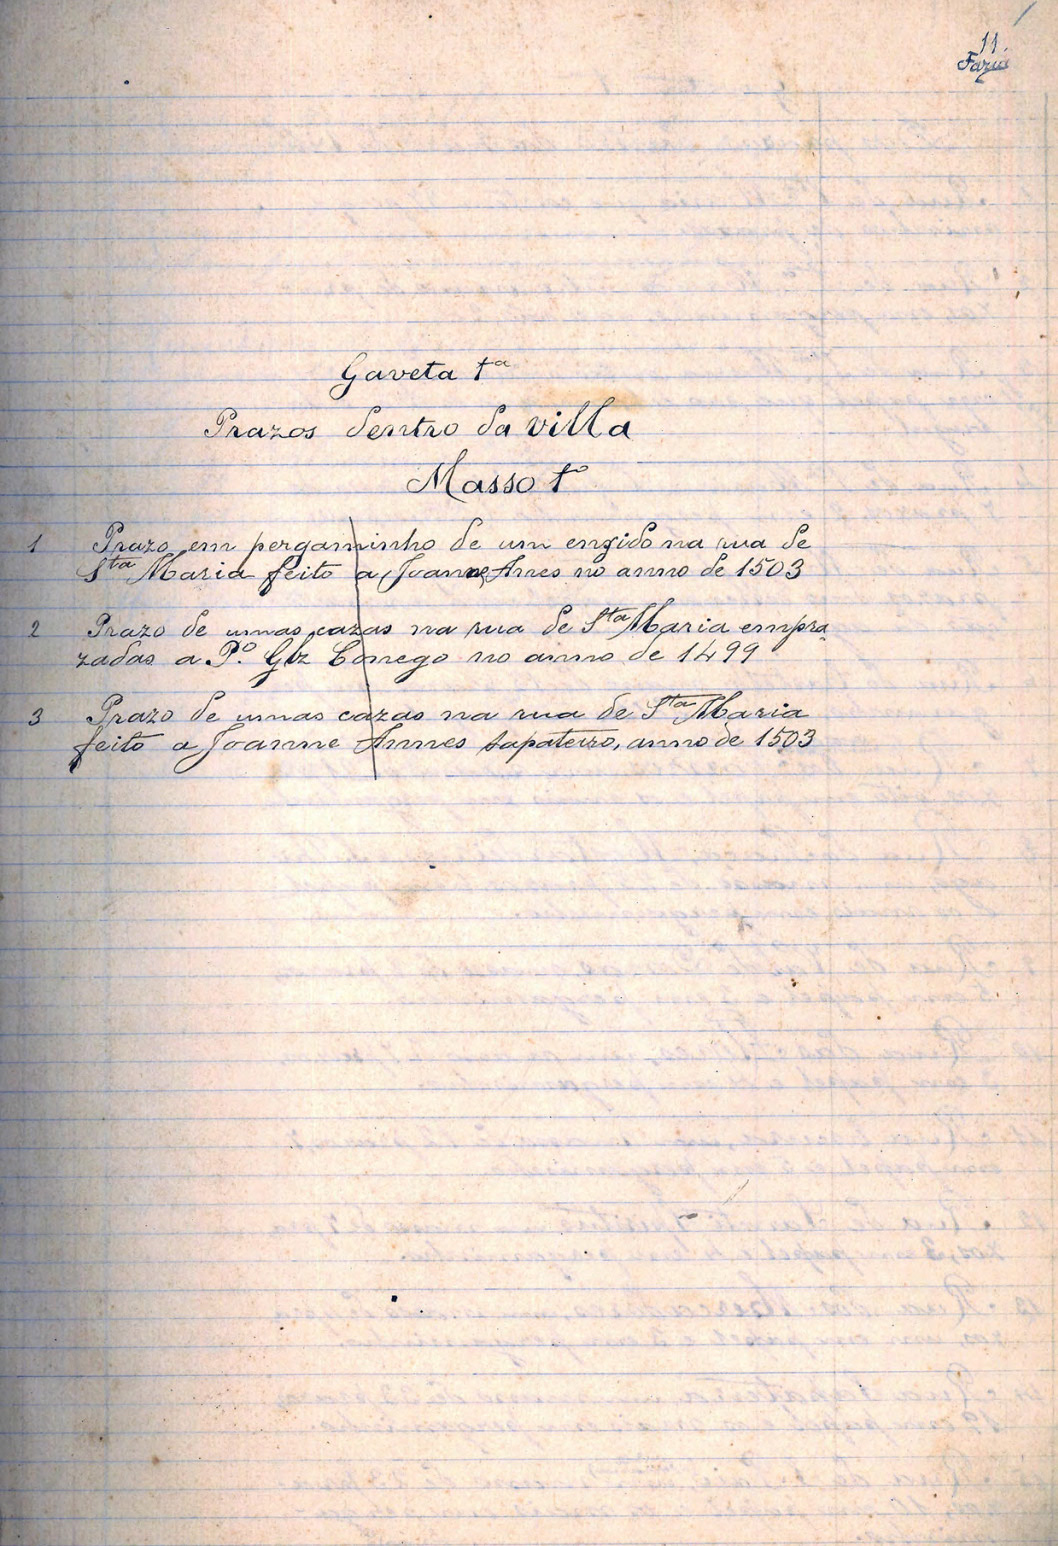 11
Gaveta 1ª
Prazos dentro da villa
Masso 1º
1 Prazo em pergaminho de um enxido na rua de
Sta Maria feito a Joanne Annes no anno de 1503
2 Prazo de umas cazas na rua de Sta Maria empra
zadas a Pº. Glz Conego no anno de 1499
3 Prazo de umas cazas na rua de Sta Maria
feito a Joanne Annes sapateiro, anno de 1503